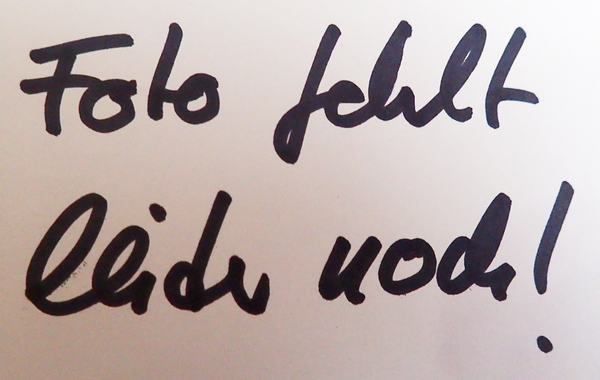 Foto fehlt
leider noch!